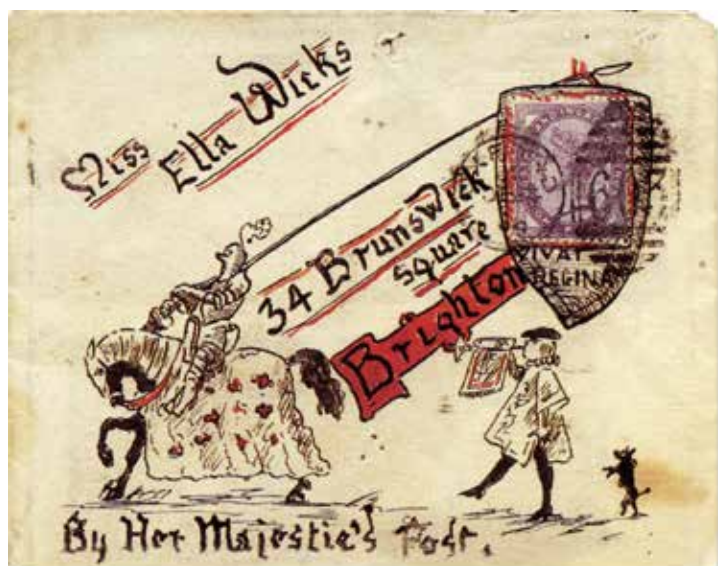 Miss
Ella Wicks
34 Brunswick
Square
Brighton
VIVAT
REGINA
By Her Majestie's Post.